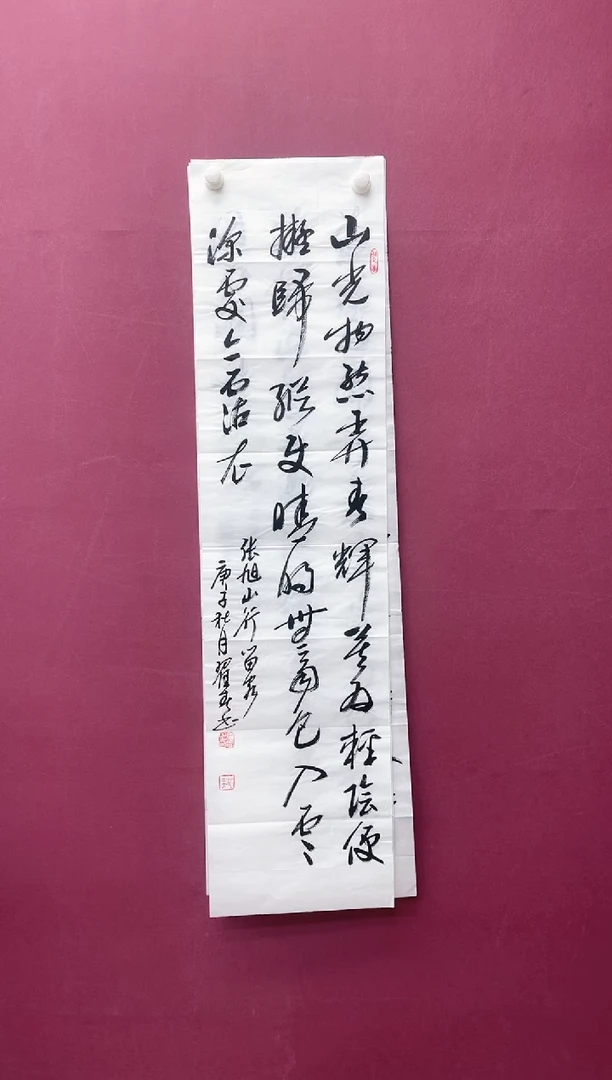 山光物態弄春輝莫為輕陰便
擬歸縱使晴明無雨色入雲
深處亦霑衣
張旭山行留客
庚子秋月翟書